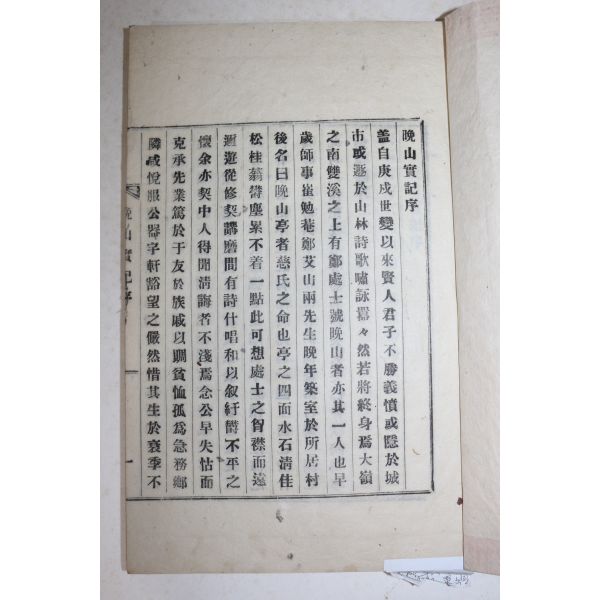 晩山實記序
盖自庚戌世變以來賢人君子不勝義憤或隱於城
市或遯於山林詩歌嘯詠囂々然若將終身焉大嶺
之南雙溪之上有鄭處士號晩山者亦其一人也早
歲師事崔勉菴鄭艾山兩先生晩年築室於所居村
後名曰晩山亭者慈氏之命也亭之四面水石清佳
松桂蓊欎塵累不着一點此可想處士之胷襟而遠
邇遊從修契講磨間有詩什唱和以叙紆欝不平之
懷余亦契中人得聞清誨者不淺焉念公早失怙而
克承先業篤於于友於族戚以賙貧恤孤為急務鄉
隣咸悅服公器宇軒豁望之儼然惜其生於衰季不
晩山實記序
一